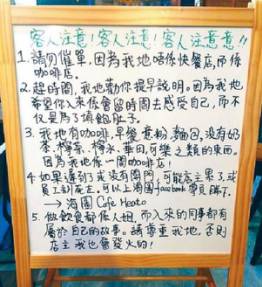 客人注意！客人注意！客人注意！！
1. 請勿催單，因為我地唔係快餐店，而係
咖啡店。
2. 趕時間，我地勸你提早說明，因為我地
希望你入來係會留時間去感受自己，而不
僅是為了填飽肚子。
3. 我地有咖啡，早餐，意粉，麵包，沒有奶
茶，檸茶，檸水，華田，可樂之類的東西。
因為我地係一間咖啡店！
4. 如果遲到了或沒有開門，可能店主累了，或
員工
可以上海園facebook專頁
→ 海園 Cafe Hea
5. 做飲食都係人姐，而入來的同事都有
屬於自己的故事。請尊重我地，否則
店主我也會發火的！